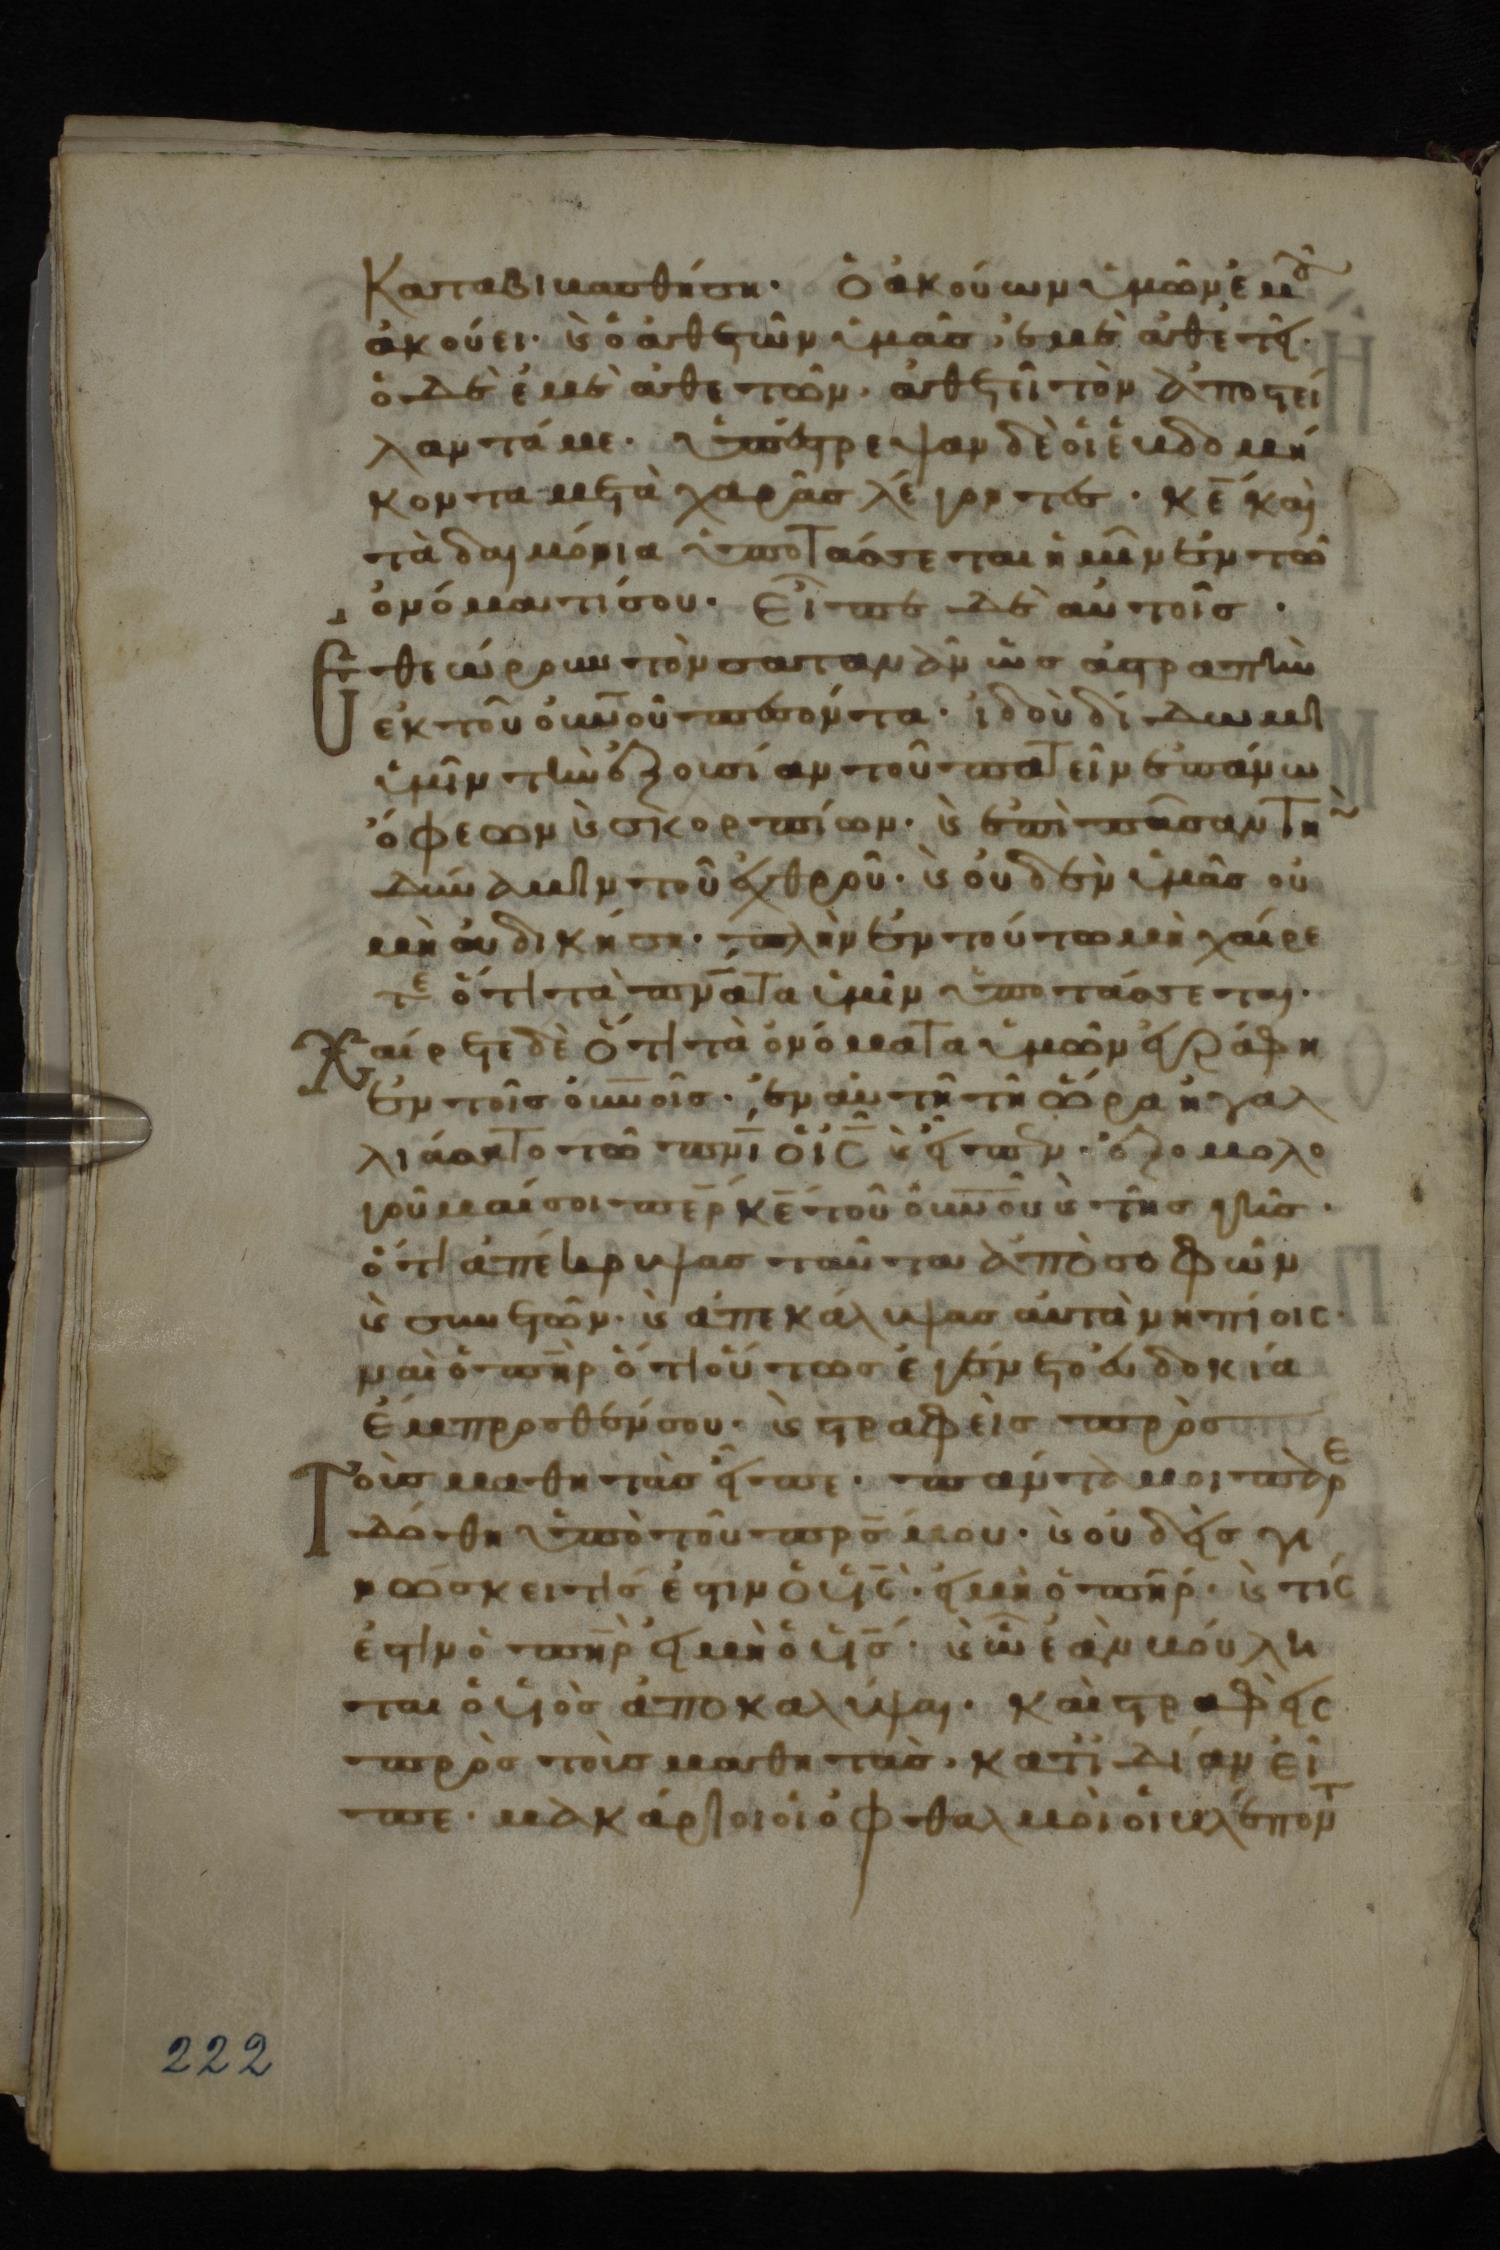 καταβιβασθήση· ὁ ἀκούων ὑμῶν ἐμοῦ
ἀκούει· καὶ ὁ ἀθετῶν ὑμᾶς, ἐμὲ ἀθετεῖ·
ὁ δὲ ἐμὲ ἀθετῶν· ἀθετεῖ τὸν ἀποστεί
λαντά με· ὑπέστρεψαν δὲ οἱ ἑβδομή
κοντα μετὰ χαρᾶς λέγοντες· κε̄ καὶ
τὰ δαιμόνια ὑποτάσσεται ἡμῖν ἐν τῶ
ὀνόματί σου· εἶπε δὲ αὐτοῖς·
Ἐθεώρουν τὸν σατανᾶν ὡς ἀστραπὴν
ἐκ τοῦ οὐνοῦ πεσόντα· ἰδοὺ δίδωμι
ὑμῖν τὴν ἐξουσίαν τοῦ πατεῖν ἐπάνω
ὄφεων καὶ σκορπίων· καὶ ἐπὶ πᾶσαν τὴν
δύναμιν τοῦ ἐχθροῦ· καὶ οὐδὲν ὑμᾶς οὐ
μὴ ἀδικήση· πλὴν ἐν τούτω μὴ χαίρε
τε ὅτι τὰ πνᾱτα ὑμῖν ὑποτάσσεται·
Χαίρετε δὲ ὅτι τὰ ὀνόματα ὑμῶν ἐγράφη
ἐν τοῖς οὐνοῖς· ἐν αὐτῆ τῆ ὥρα ἠγαλ
λιάσατο τῶ πνῑ ὁ ις̄ καὶ εἶπεν· ἐξομολο
γοῦμαί σοι περ̄ κε̄ τοῦ οὐνοῦ καὶ τῆς γῆς·
ὅτι ἀπέκρυψας ταῦτα ἀπὸ σοφῶν
καὶ συνετῶν· καὶ ἀπεκάλυψας αὐτὰ νηπίοις·
ναὶ ὁ πηρ̄ ὅτι οὕτως ἐγένετο εὐδοκία
ἔμπροσθέν σου· καὶ στραφεὶς πρὸς
Τοὺς μαθητὰς εἶπε· πάντα μοι παρε
δόθη ὑπὸ τοῦ πρς̄ μου· καὶ οὐδεὶς γι
νώσκει τίς ἐστιν ὁ υἱς̄· εἰ μὴ ὁ πηρ̄· καὶ τίς
ἐστιν ὁ πηρ̄ εἰ μὴ ὁ υἱς̄· καὶ ὧ ἐὰν βούλη
ται ὁ υἱὸς ἀποκαλύψαι· καὶ στραφεὶς
πρὸς τοὺς μαθητὰς· κατ' ἰδίαν εἶ
πε· μακάριοι οἱ ὀφθαλμοὶ οἱ βλέποντ
222